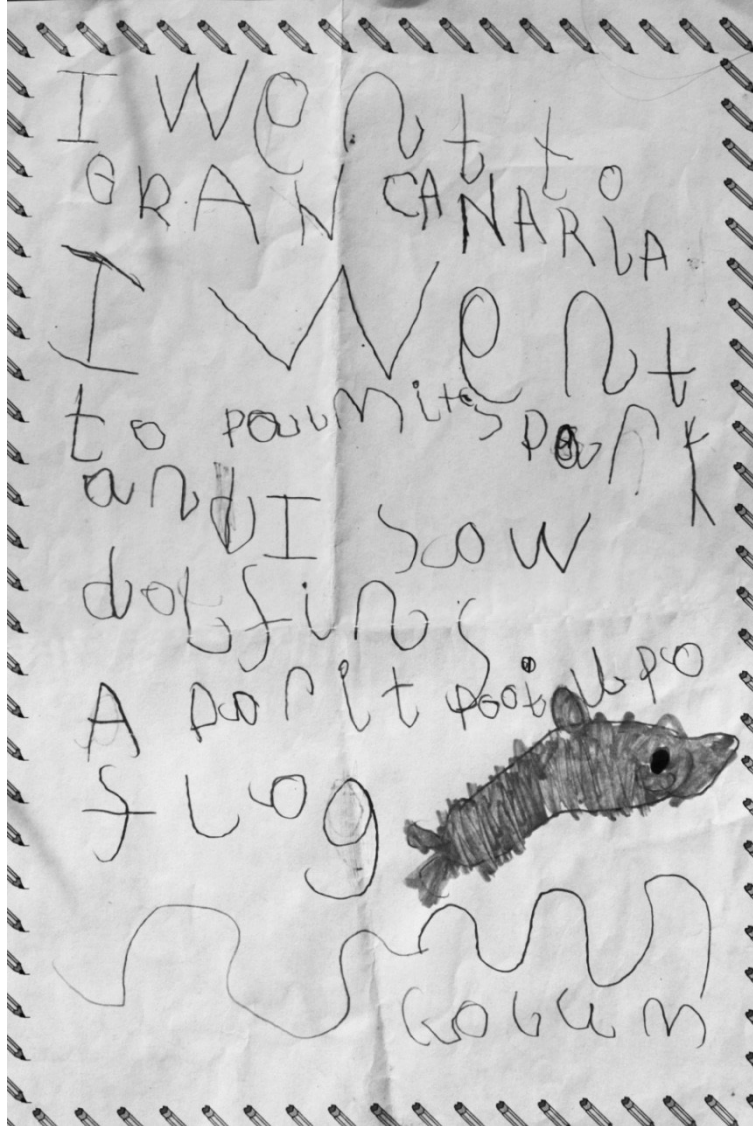 I went to
GRAN CANARIA
I went
to paulmitos park
and I sow
dolfins
A parit pooild po
flag